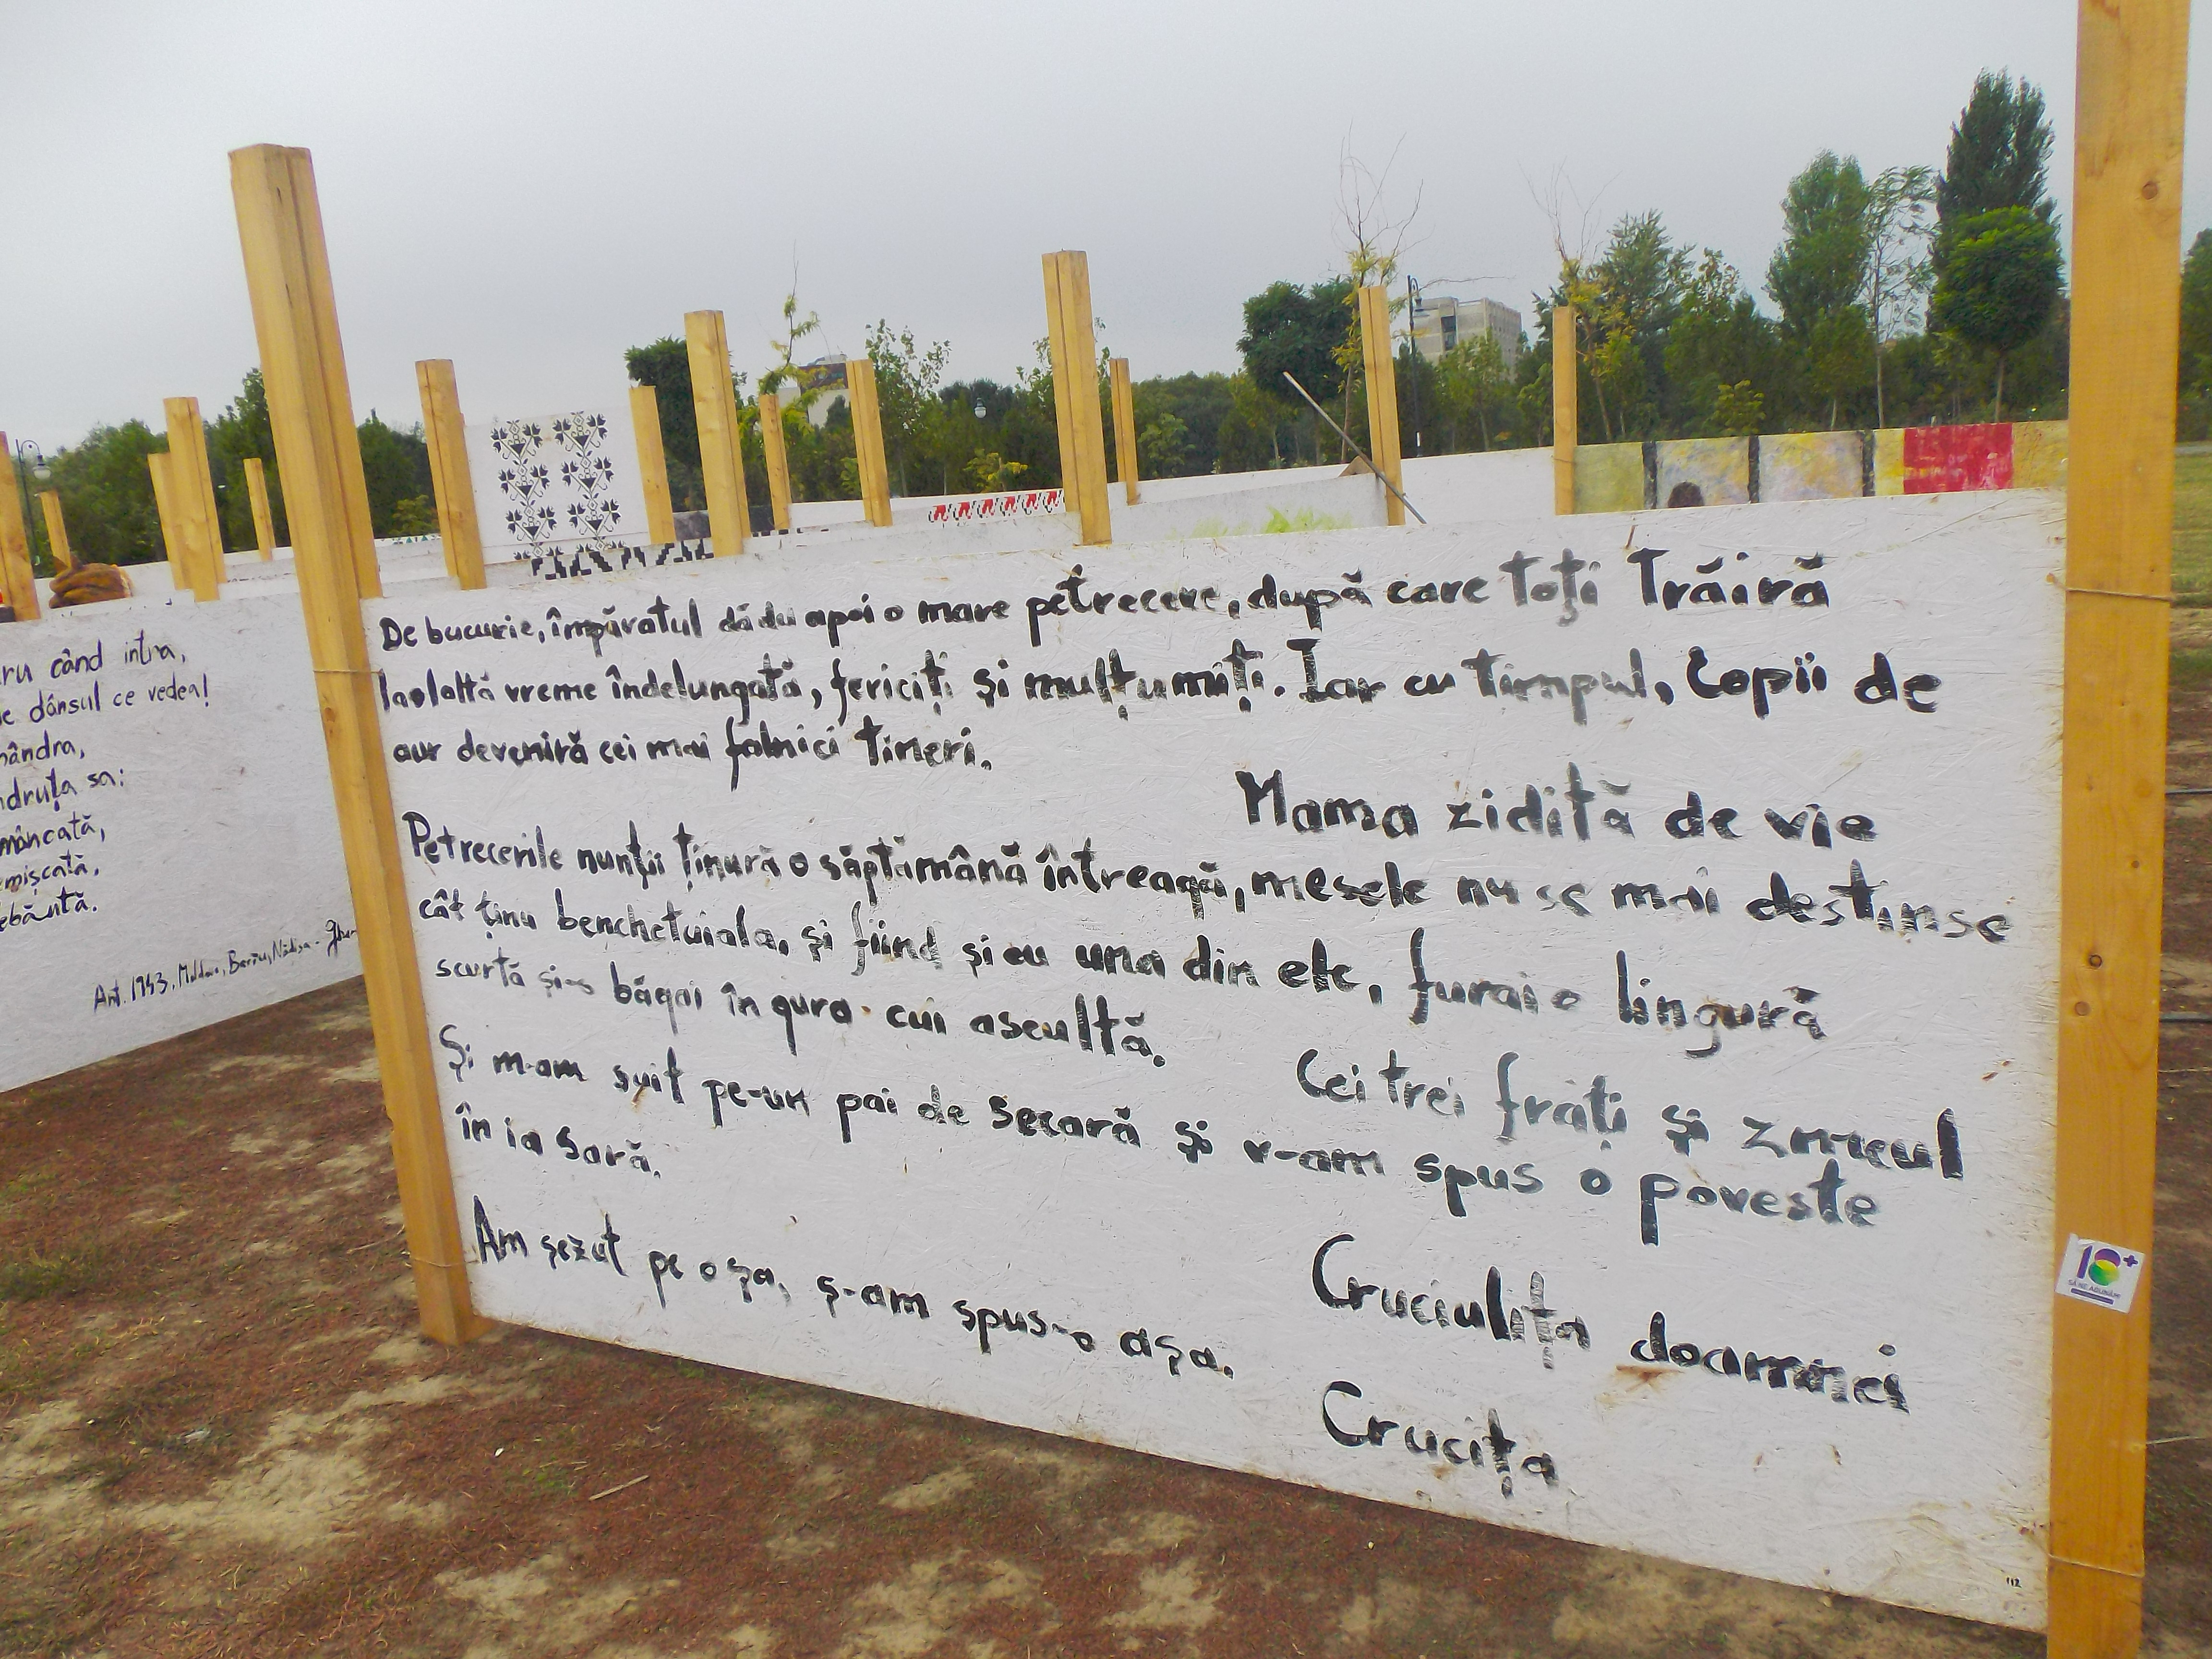 De bucurie, împăratul dădu apoi o mare petrecere, după care toți trăiră
laolaltă vreme îndelungată, fericiți și mulțumiți. Iar cu timpul, Copii de
aur deveniră cei mai falnici tineri.
Mama zidită de vie
Petrecerile nunții ținură o săptămână întreagă, mesele nu se mai destinse
cât ținu benchetuiala, și fiind și eu una din ele, furai o lingură
scurtă și-o băgai în gura cui ascultă.
Cei trei frați și zmeul
Și m-am suit pe-un pai de secară și v-am spus o poveste
în ia sară.
Cruciulița doamnei
Am șezut pe o șa, ș-am spus-o așa.
Crucița
112
ru când intra,
dânsul ce vedea!
ândra,
druța sa:
mâncată,
mișcată,
Ant. 1943,
18+
SĂ NE ADUNĂM